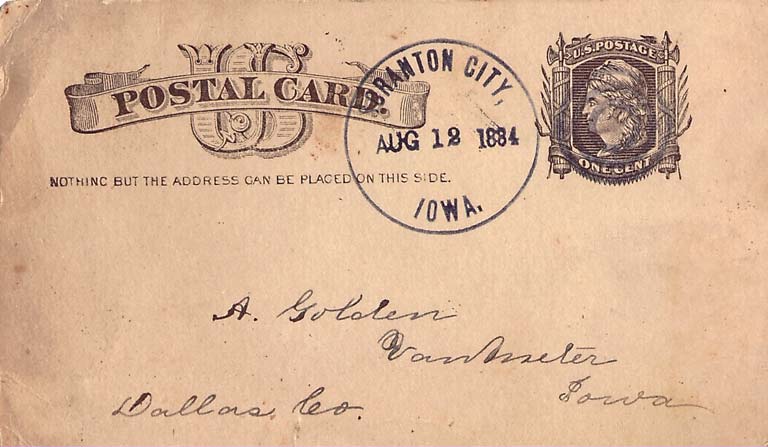 US
POSTAL CARD.
U.S. POSTAGE
ONE CENT
NOTHING BUT THE ADDRESS CAN BE PLACED ON THIS SIDE.
GRANTON CITY,
AUG 12 1884
IOWA.
A. Golden
VanMeter
Dallas Co. Iowa